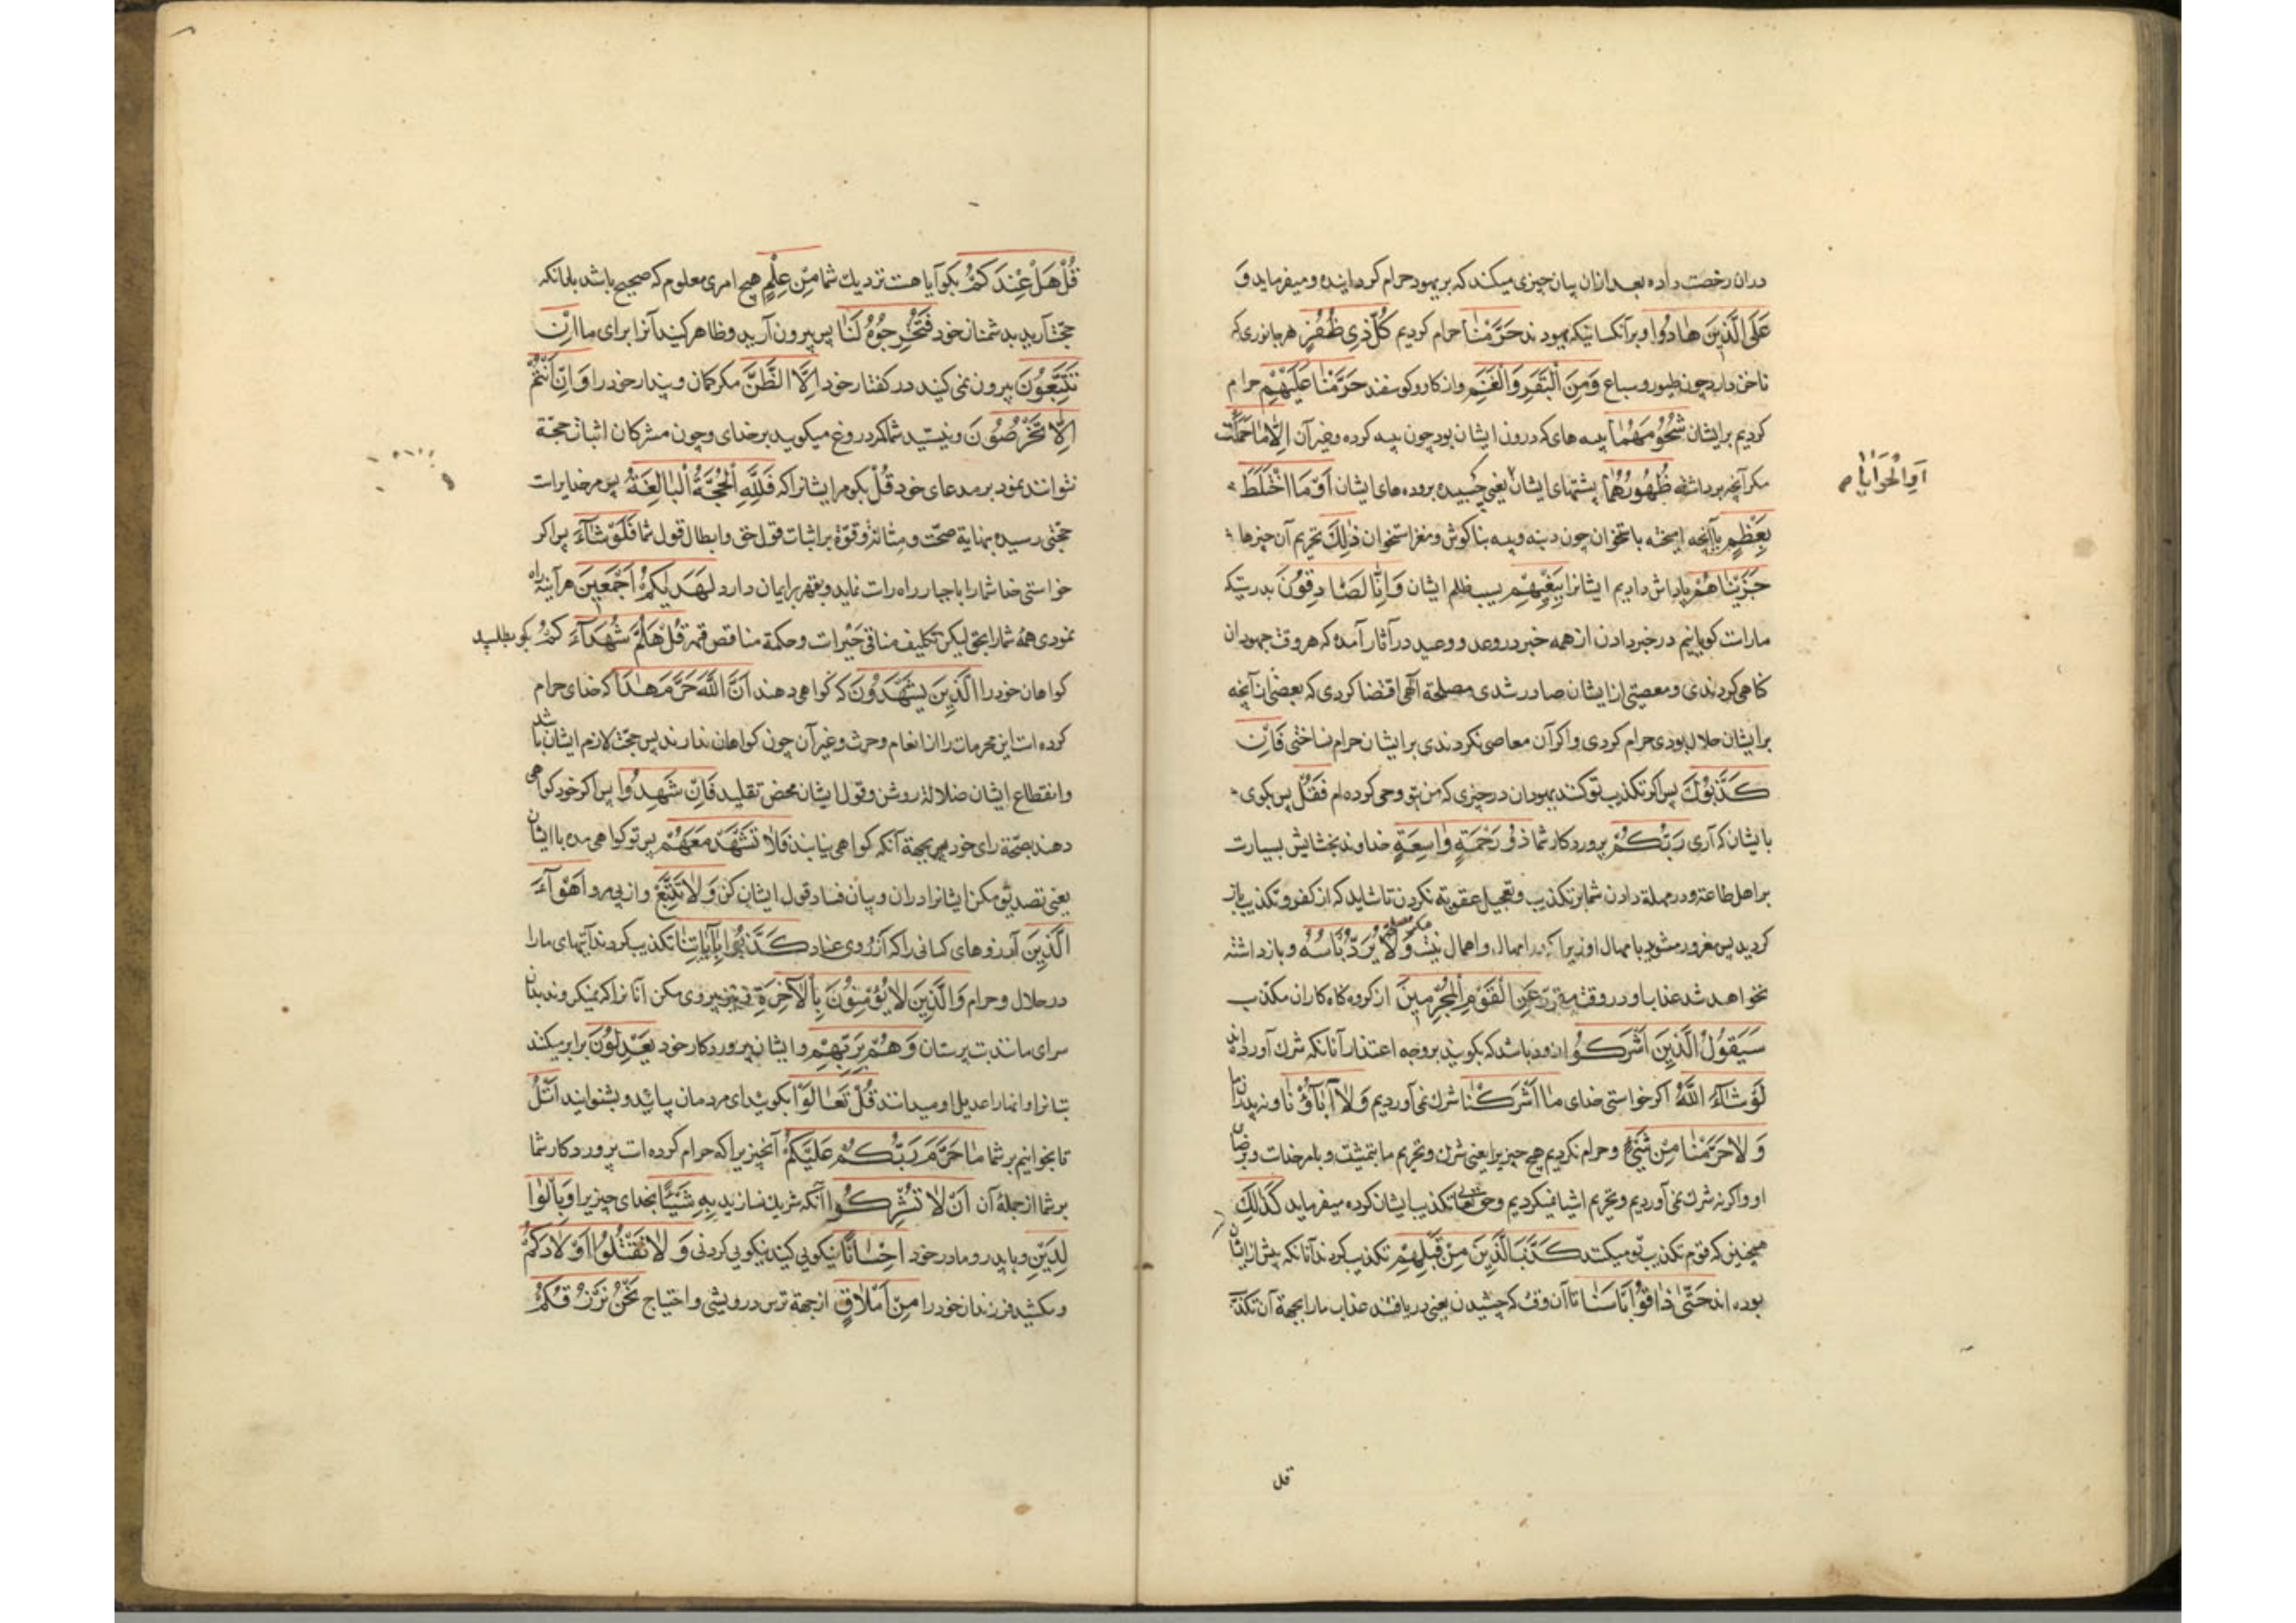 دران رخصت داده بعد ازان بیان چیزی میکند که بر یهود حرام کردانیده و میفرماید وَ
عَلَى الَّذِينَ هٰادُوا و بر آنکسانیکه یهودند حَرَّمْنٰا حرام کردیم كُلَّ ذِي ظُفُرٍ هر جانوری که
ناخن دارد چون طیور و سباع وَمِنَ الْبَقَرِ وَالْغَنَمِ و از کاو و کوسفند حَرَّمْنٰا عَلَيْهِمْ حرام
کردیم بر ایشان شُحُومَهُمٰا پیه های که درون ایشان بود چون پیه کرده و غیر آن اِلّٰا مٰا حَمَلَتْ
مکر آنچه برداشته ظُهُورُهُمٰا پشتهای ایشان یعنی چسبیده بروده های ایشان اَوْ مَا اخْتَلَطَ
اَوِ الْحَوٰایٰا
بِعَظْمٍ یا آنچه امیخته باستخوان چون دنبه و پیه بناکوش و مغز استخوان ذٰلِكَ تحریم آن چیزها
جَزَيْنٰاهُمْ پاداش دادیم ایشانرا بِبَغْيِهِمْ بسبب ظلم ایشان وَاِنّٰا لَصٰادِقُونَ بدرستیکه
ما راست کویانیم در خبر دادن از همه خبر در وعد و وعید در آثار آمده که هر وقت جهودان
کناهی کردندی و معصیتی از ایشان صادر شدی مصلحة الٓهی اقتضا کردی که بعضی از آنچه
بر ایشان حلال بودی حرام کردی و اکر آن معاصی نکردندی بر ایشان حرام نساختی فَاِنْ
كَذَّبُوكَ پس اکر تکذیب تو کنند یهودان در چیزی که من بتو وحی کرده ام فَقُلْ پس بکوی
با ایشان که آری رَبُّكُمْ پروردکار شما ذُو رَحْمَةٍ وٰاسِعَةٍ خداوند بخشایش بسیارست
بر اهل طاعة و در مهلة دادن شما بر تکذیب و تعجیل عقوبة نکردن تا شاید که از کفر و تکذیب باز
کردید پس مغرور مشوید بامهال او زیرا که در امهال و اهمال نیست وَلٰا يُرَدُّ بَأْسُهُ و بازداشته
نخواهد شد عذاب او در وقت مقرر عَنِ الْقَوْمِ الْمُجْرِمِينَ از کروه کناه کاران مکذب
سَيَقُولُ الَّذِينَ اَشْرَكُوا زود باشد که بکویند بر وجه اعتذار آنانکه شرك آورده اند
لَوْ شٰاءَ اللّٰهُ اکر خواستی خدای مٰا اَشْرَكْنٰا شرك نمی آوردیم وَلٰا آبٰاؤُنٰا و نه پدران ما
وَلٰا حَرَّمْنٰا مِنْ شَيْءٍ و حرام نکردیم هیچ چیزیرا یعنی شرك و تحریم ما بمشیت و بامر خداست و برضای
او و اکر نه شرك نمی آوردیم و تحریم اشیا نمیکردیم و حق تعالی تکذیب ایشان کرده میفرماید كَذٰلِكَ
همچنین که قوم تکذیب تو میکنند كَذَّبَ الَّذِينَ مِنْ قَبْلِهِمْ تکذیب کردند آنانکه پیش از ایشان
بوده اند حَتّٰى ذٰاقُوا بَأْسَنٰا تا آن وقت که چشیدند یعنی دریافتند عذاب ما را بجهة آن تکذیب
قل
قُلْ هَلْ عِنْدَكُمْ بکو آیا هست نزدیك شما مِنْ عِلْمٍ هیچ امری معلوم که صحیح باشد بدانکه
حجت آرید بدشمنان خود فَتُخْرِجُوهُ لَنٰا پس بیرون آرید و ظاهر کنید آنرا برای ما اِنْ
تَتَّبِعُونَ پیرون نمی کنید در کفتار خود اِلَّا الظَّنَّ مکر کمان و پندار خود را وَاِنْ اَنْتُمْ
اِلّٰا تَخْرُصُونَ و نیستید شما مکر دروغ میکویید بر خدای و چون مشرکان اثبات حجة
نتوانند نمود بر مدعای خود قُلْ بکو مر ایشانرا که فَلِلّٰهِ الْحُجَّةُ الْبٰالِغَةُ پس مر خدایراست
حجتی رسیده بنهایة صحّت و متانة و قوّة بر اثبات قول حق و ابطال قول شما فَلَوْ شٰاءَ پس اکر
خواستی خدا شما را باجبار راه راست نماید و بقهر بر ایمان دارد لَهَدٰيكُمْ اَجْمَعِينَ هر آینه راه
نمودی همهٔ شما را بحق لیکن تکلیف منافی جبرست و حکمة مناقض قهر قُلْ هَلُمَّ شُهَدٰاءَكُمُ بکو بطلبید
کواهان خود را الَّذِينَ يَشْهَدُونَ که کواهی دهند اَنَّ اللّٰهَ حَرَّمَ هٰذٰا که خدای حرام
کرده است این محرمات را از انعام و حرث و غیر آن چون کواهان ندارند پس حجت لازم ایشان باشد
و انقطاع ایشان ضلالة روشن و قول ایشان محض تقلید فَاِنْ شَهِدُوا پس اکر خود کواهی
دهند بصحّة رای خود بجهة آنکه کواهی نیابند فَلٰا تَشْهَدْ مَعَهُمْ پس تو کواهی مده با ایشان
یعنی تصدیق مکن ایشانرا دران و بیان فساد قول ایشان کن وَلٰا تَتَّبِعْ و از پی مرو اَهْوٰاءَ
الَّذِينَ آرزوهای کسانی را که از روی عناد كَذَّبُوا بِآيٰاتِنٰا تکذیب کردند آیتهای ما را
در حلال و حرام وَالَّذِينَ لٰا يُؤْمِنُونَ بِالْآخِرَةِ و نیز پیروی مکن آنانرا که نمیکروند بدان
سرای مانند بت پرستان وَهُمْ بِرَبِّهِمْ و ایشان بپروردکار خود يَعْدِلُونَ برابر میکنند
بتانرا و انها را عدیل او میدانند قُلْ تَعٰالَوْا بکو بیدای مردمان بیائید و بشنوانید اَتْلُ
تا بخوانیم بر شما مٰا حَرَّمَ رَبُّكُمْ عَلَيْكُمْ آنچیزیرا که حرام کرده است پروردکار شما
بر شما از جملهٔ آن اَنْ لٰا تُشْرِكُوا آنکه شریك نسازید بِهِ شَيْئًا بخدای چیزیرا وَبِالْوٰا
لِدَيْنِ و با پدر و مادر خود اِحْسٰانًا نیکویی کنید نیکویی کردنی وَلٰا تَقْتُلُوا اَوْلٰادَكُمْ
و مکشید فرزندان خود را مِنْ اِمْلٰاقٍ از جهة ترس درویشی و احتیاج نَحْنُ نَرْزُقُكُمْ